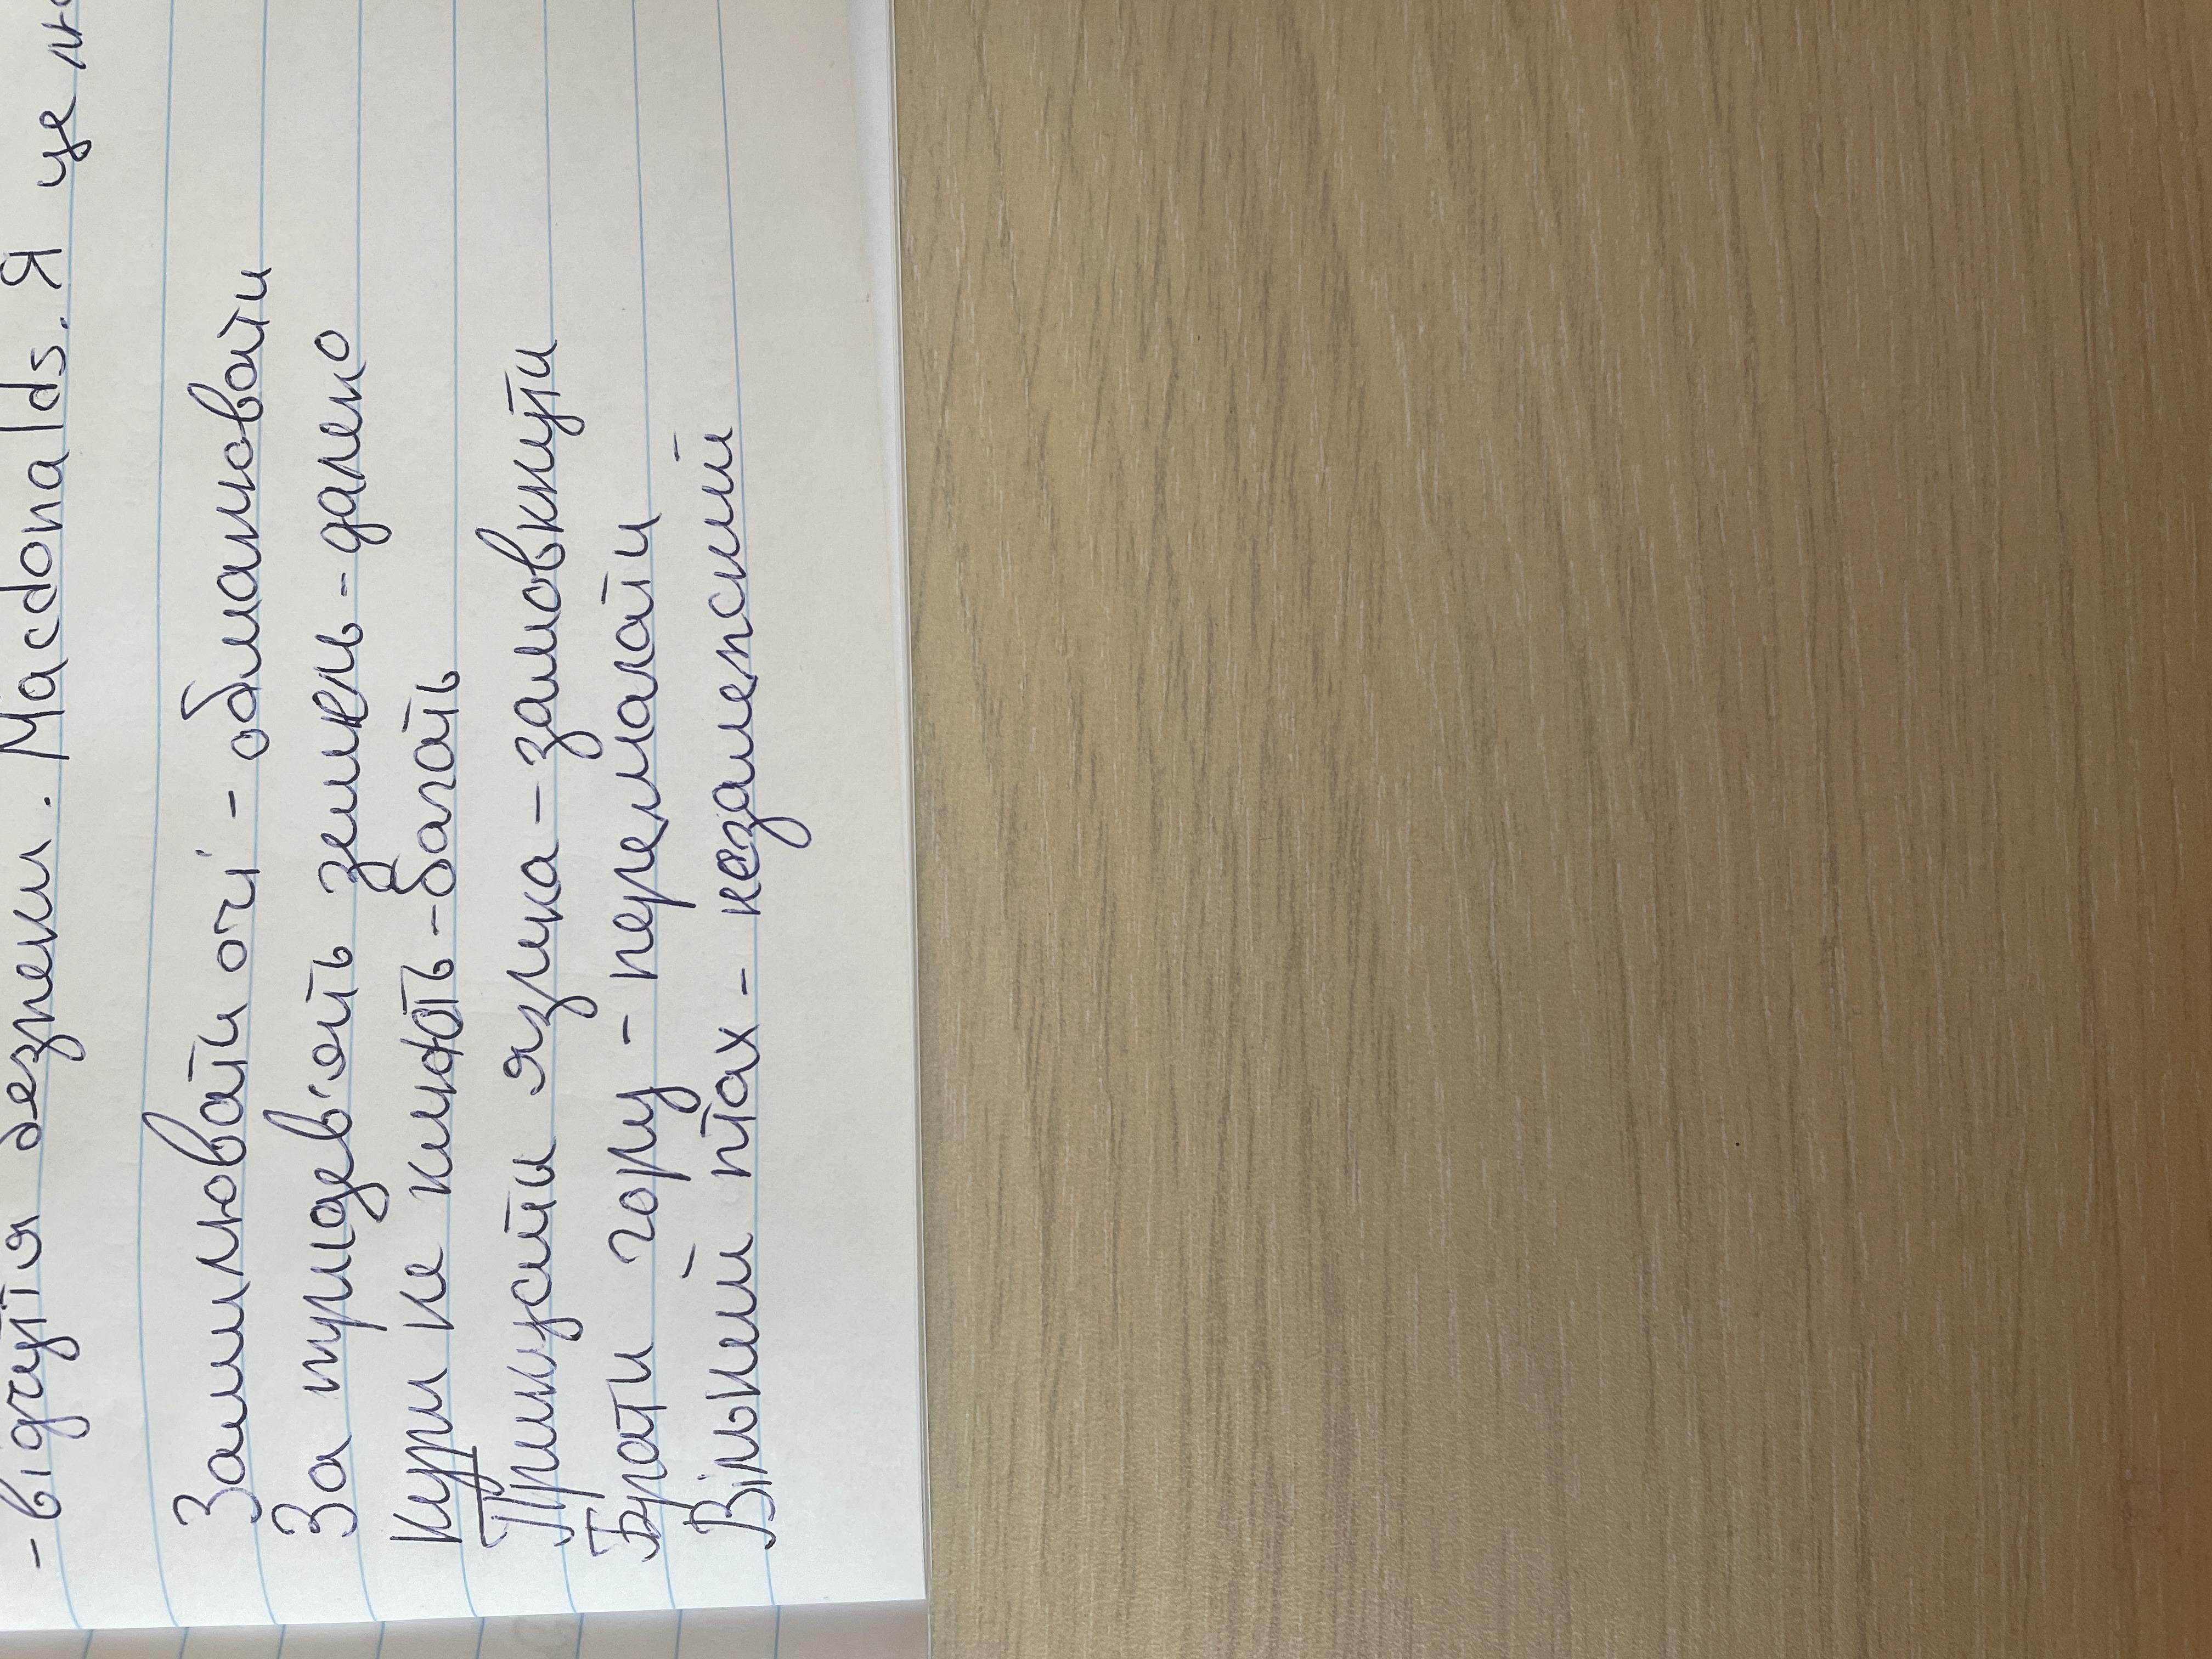 - відчуття безпеки. Macdonalds. Я це
Замилювати очі - обманювати
За тридев'ять земель - далеко
Кури не клюють - багать
Прикусити язика - замовкнути
Брати гору - перемагати
Вільний птах - незалепсний